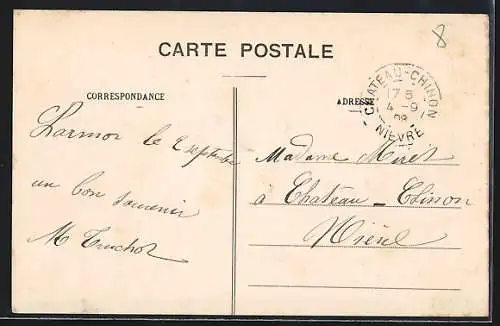 8
CARTE POSTALE
CORRESPONDANCE
Larmor le 2 septembre
un bon souvenir
M Truchot
ADRESSE
CHATEAU-CHINON
4 - 9
NIEVRE
Madame Miret
à Château - Chinon
Nièvre